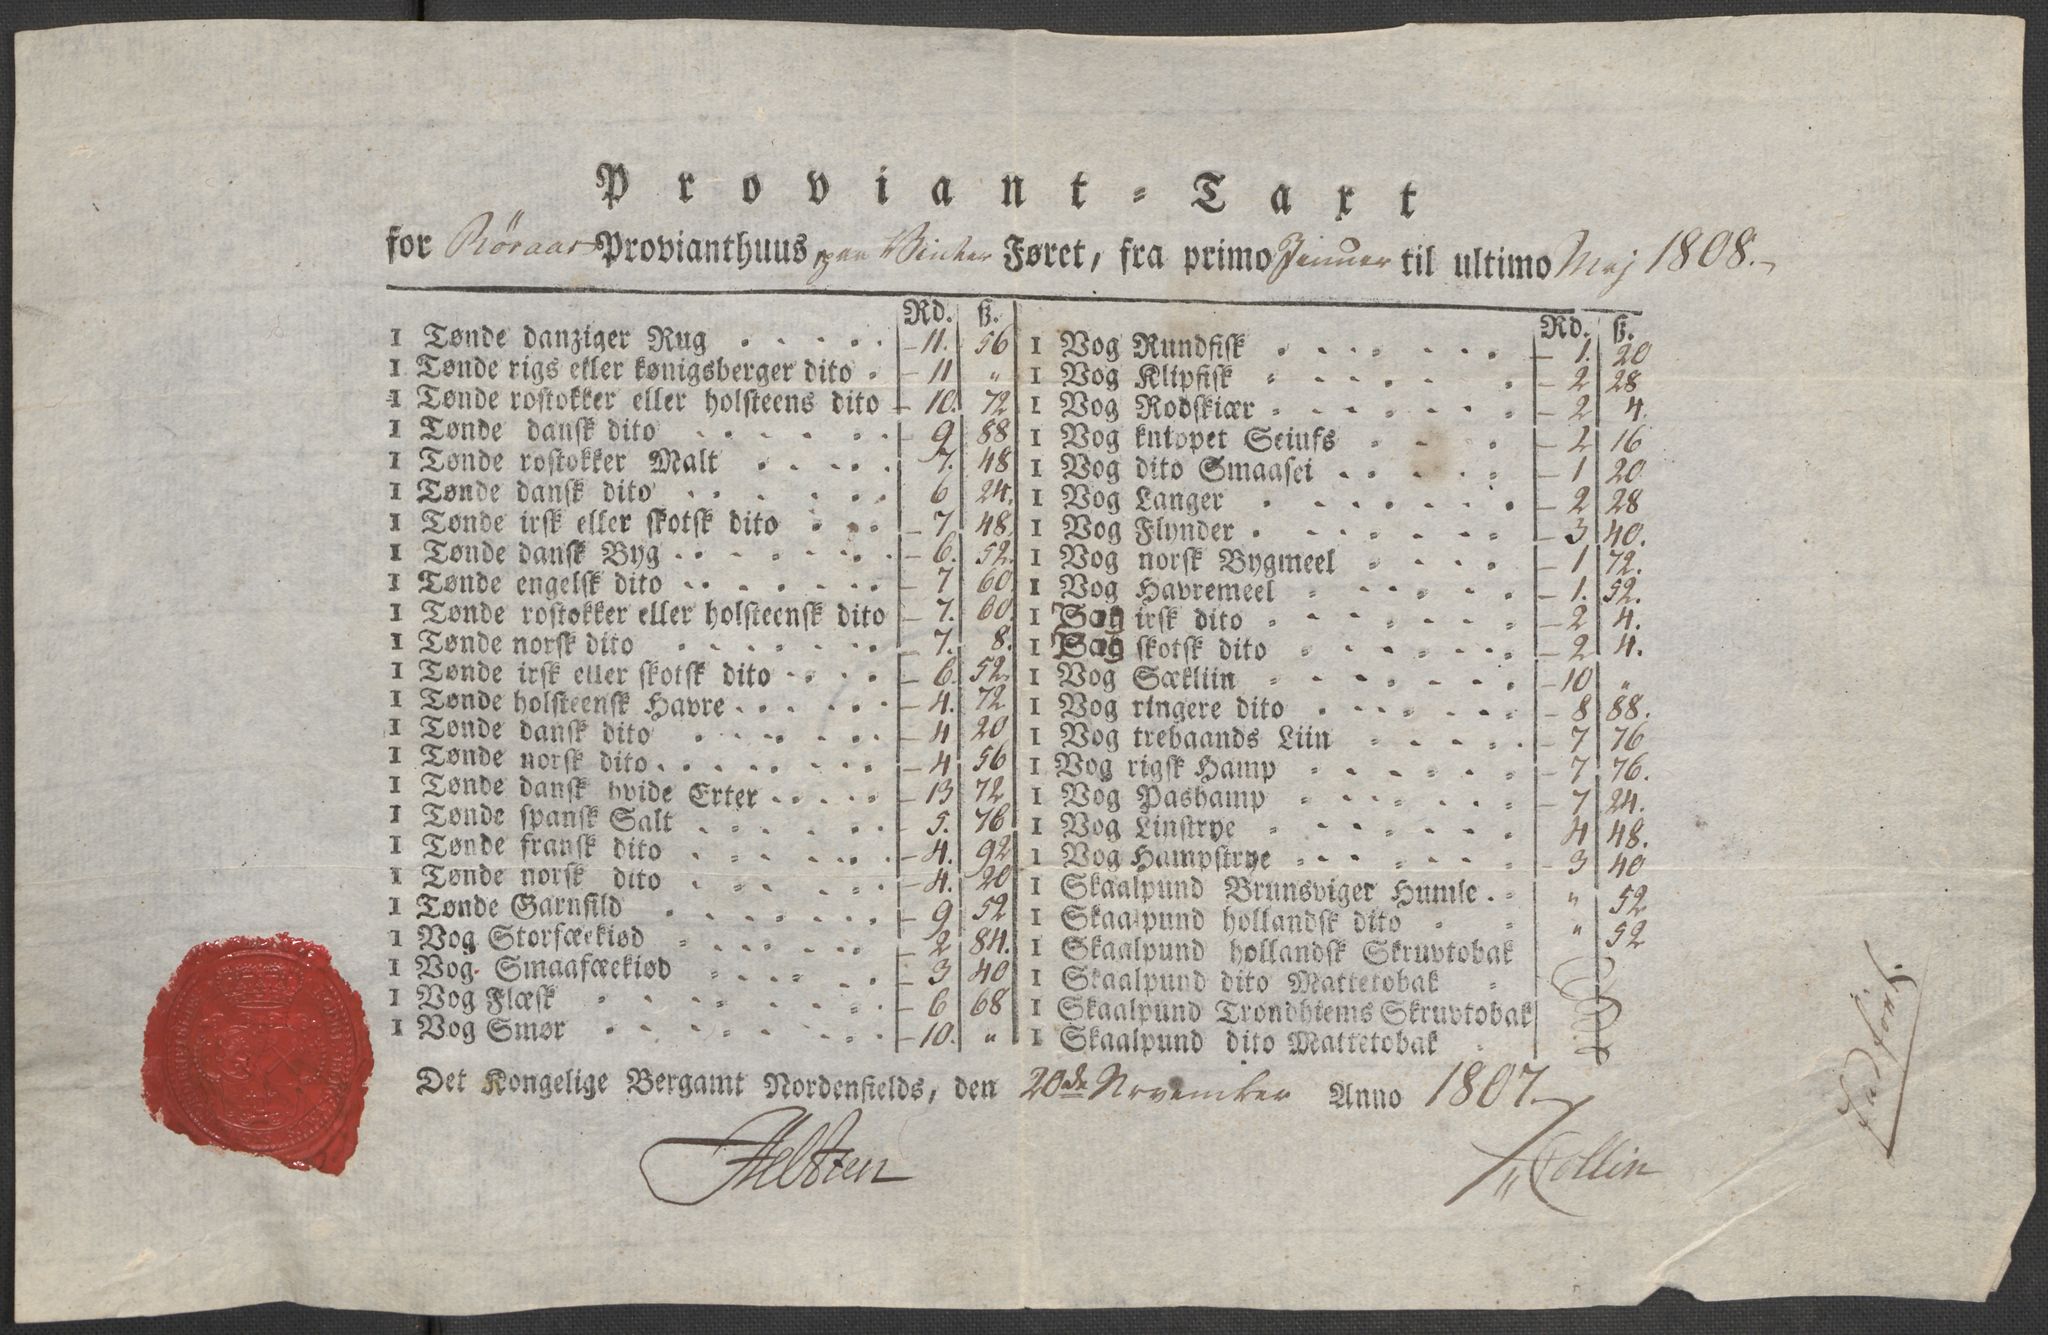 Proviant-Taxt
for Röraas Provianthuus paa Vinter Føret, fra primo Januer til ultimo Maj 1808.
Rd. ß.
1 Tønde danziger Rug 11. 56
1 Tønde rigs eller kønigsberger dito 11 "
1 Tønde rostokker eller holsteens dito 10. 72
1 Tønde dansk dito 9 88
1 Tønde rostokker Malt 7. 48
1 Tønde dansk dito 6 24.
1 Tønde irsk eller skotsk dito 7 48.
1 Tønde dansk Byg 6. 52.
1 Tønde engelsk dito 7 60
1 Tønde rostokker eller holsteensk dito 7. 60.
1 Tønde norsk dito 7. 8.
1 Tønde irsk eller skotsk dito 6. 52.
1 Tønde holsteensk Havre 4. 72
1 Tønde dansk dito 4 20
1 Tønde norsk dito 4 56
1 Tønde dansk hvide Erter 13 72
1 Tønde spansk Salt 5. 76
1 Tønde fransk dito 4. 92
1 Tønde norsk dito 4. 20
1 Tønde Garnsild 9 52
1 Vog Storfæekiød 2 84.
1 Vog Smaafæekiød 3 40
1 Vog Flæsk 6 68
1 Vog Smør 10. "
Rd. ß.
1 Vog Rundfisk 1. 20
1 Vog Klipfisk 2 28
1 Vog Rodskiær 2 4.
1 Vog knippet Seiufs 2 16
1 Vog dito Smaasei 1 20
1 Vog Langer 2 28
1 Vog Flynder 3 40.
1 Vog norsk Bygmeel 1 72.
1 Vog Havremeel 1. 52.
1 Vog irsk dito 2 4.
1 Vog skotsk dito 2 4.
1 Vog Sækliin 10 "
1 Vog ringere dito 8 88.
1 Vog trebaands Liin 7 76
1 Vog rigsk Hamp 7 76.
1 Vog Pashamp 7 24.
1 Vog Linstrye 4 48.
1 Vog Hampstrye 3 40
1 Skaalpund Brunsviger Humle " 52
1 Skaalpund hollandsk dito " 52
1 Skaalpund hollandsk Skruvtobak
1 Skaalpund dito Mattetobak
1 Skaalpund Trondhiems Skruvtobak
1 Skaalpund dito Mattetobak
Det Kongelige Bergamt Nordenfields, den 20de November Anno 1807.
Collin